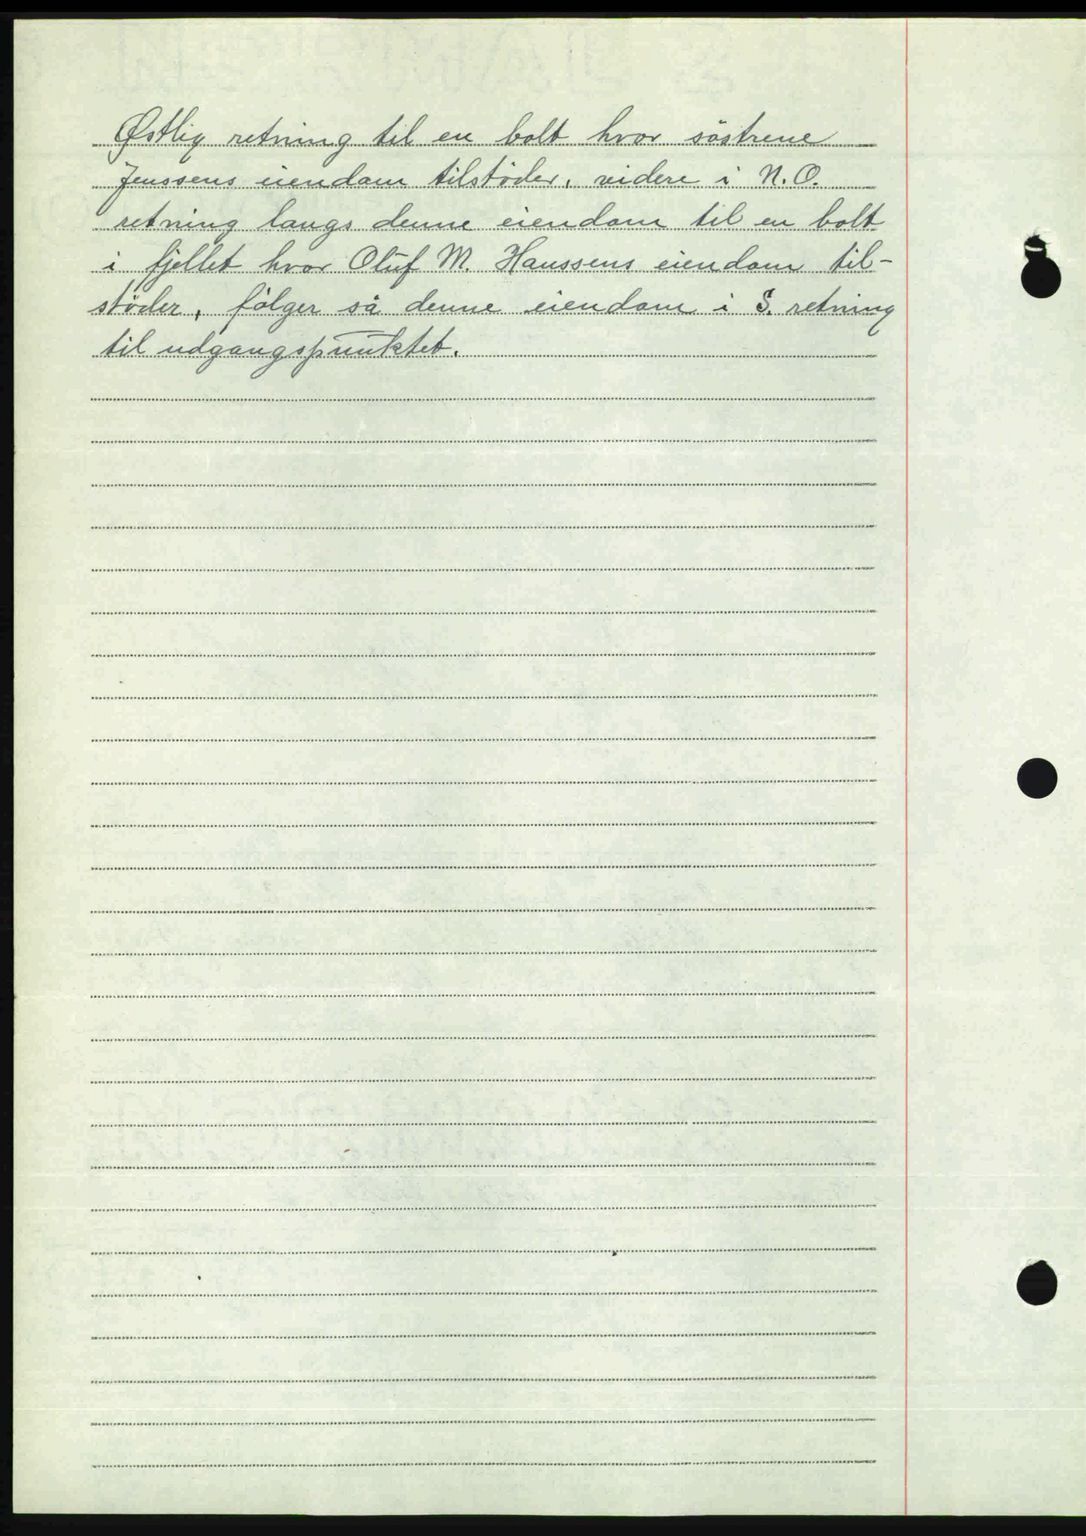 Østlig retning til en bolt hvor söstrene
Jenssens eiendom tilstöder, videre i N.O.
retning langs denne eiendom til en bolt
i fjellet hvor Oluf M. Hanssens eiendom til-
stöder, fölger så denne eiendom i S. retning
til udgangspunktet.